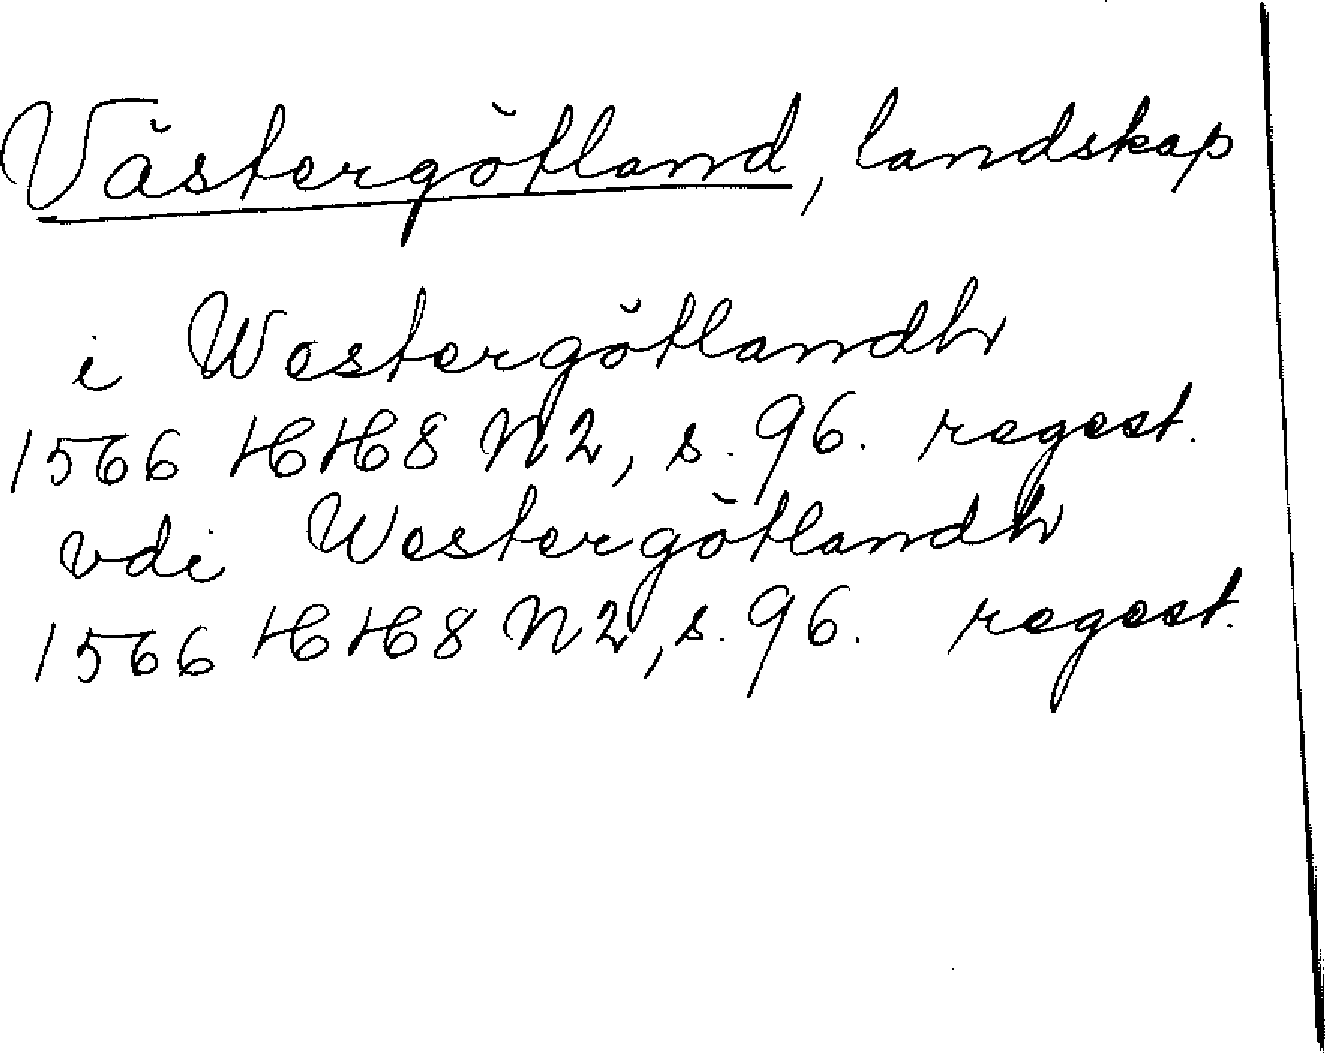 Västergötland, landskap
i Westergötlandh
1566 HH8 N2, s. 96. regest.
vdi Westergötlandh
1566 HH8 N2, s. 96. regest.